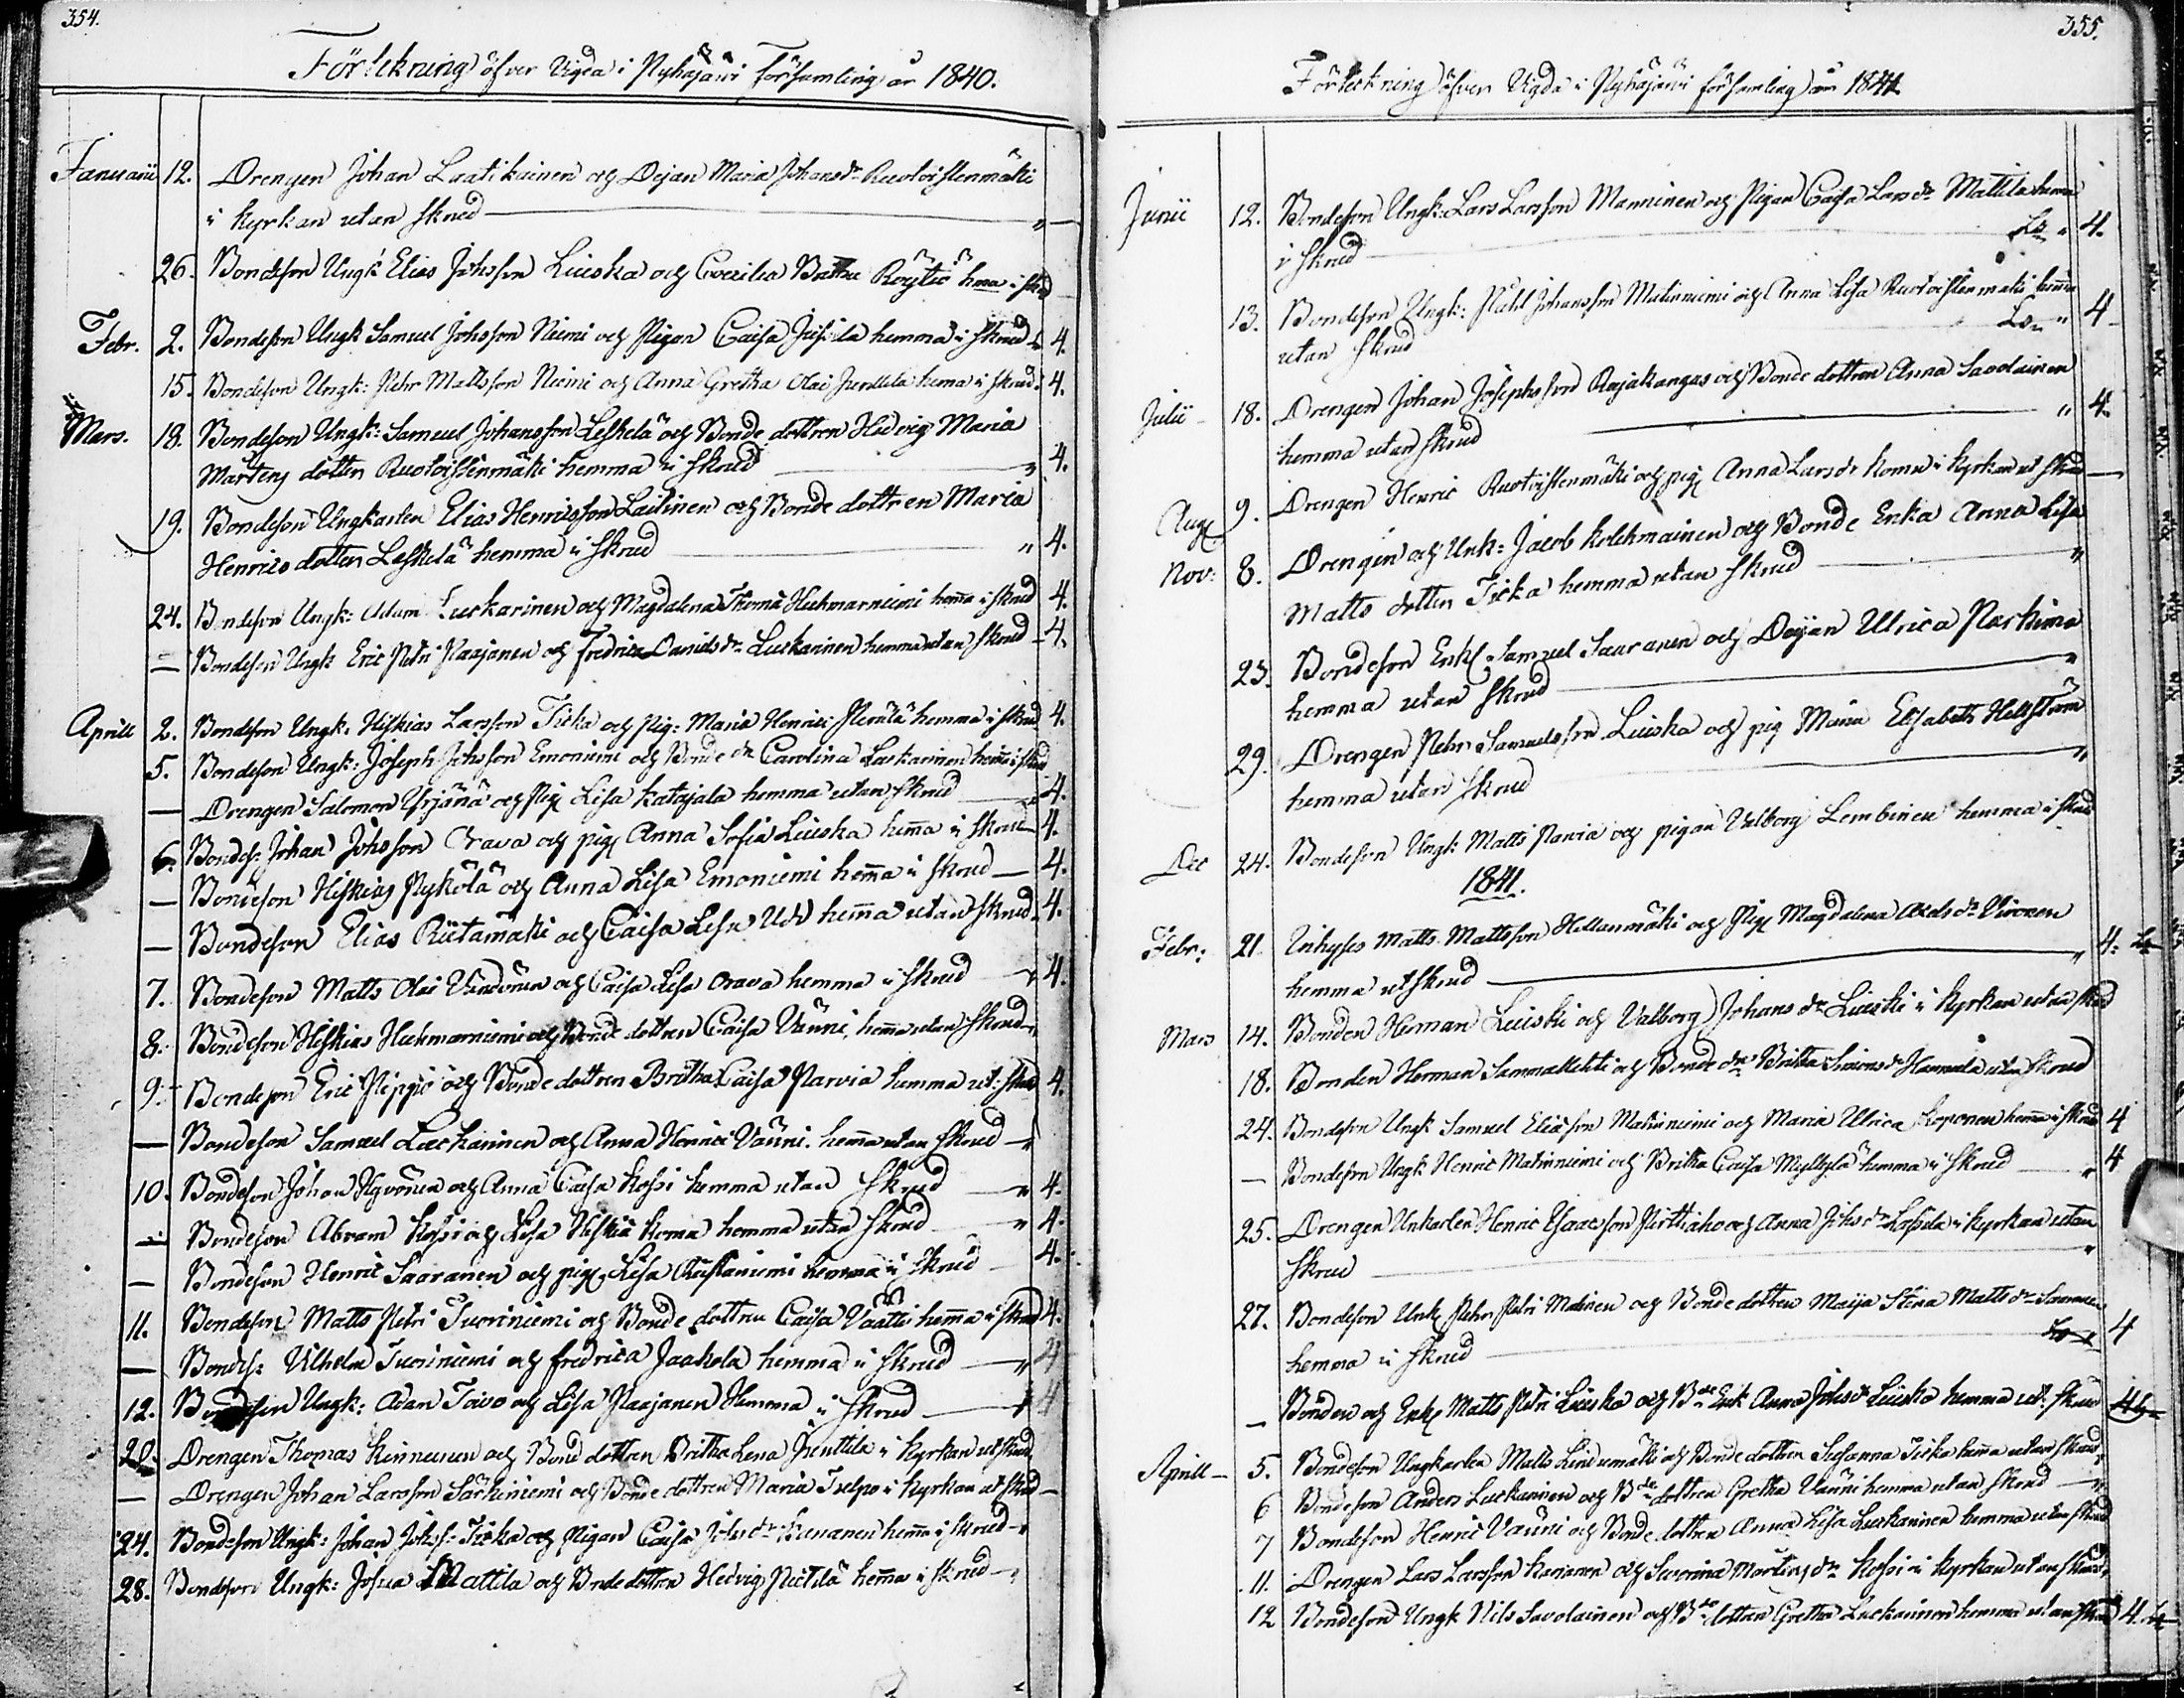 354.
Förtekning öfver Vigda i Pyhäjärvi Församling år 1840.
Januarii 12. Drengen Johan Laatikainen och Dejan Maria Johansdr Ruotoistenmäki
i Kyrkan utan skrud — "
26. Bondeson Ungk Elias Johsson Liuska och Caecilia Röytiö hema i skrud
Febr. 2. Bondeson Ungk Samuel Johsson Niemi och Pigan Caisa Jusila hemma i skrud 4.
15. Bondeson Ungk: Pehr Mattsson Niemi och Anna Gretha Olai Junttila hema i skrud 4.
Mars. 18. Bondeson Ungk: Samuel Johansson Leskelä och Bonde dottren Hedvig Maria
Mårtens dotter Ruotoistenmäki hemma i skrud — " 4.
19. Bondeson Ungkarlen Elias Henricsson Laitinen och Bonde dottren Maria
Henrics dotter Leskelä hemma i skrud — " 4.
24. Bondeson Ungk: Adam Luckarinen och Magdalena Hukmarniemi hema i skrud 4.
— Bondeson Ungk Eric Petri Paajanen och Fredrica Danielsdr Luckarinen hemma utan skrud — 4.
Aprill 2. Bondeson Ungk. Hiskias Larsson Ticka och Pig: Maria Henrici hemma i skrud 4.
5. Bondeson Ungk: Joseph Johsson Emoniemi och Bonde dr Carolina Luckarinen hema i skrud
— Drengen Salomon Yrjänä och Pig Lisa Katajala hemma utan skrud — 4.
6. Bondes: Johan Johsson Orava och pig Anna Sofia Liuska hema i skrud 4.
— Bondeson Hiskias Nykölä och Anna Lisa Emoniemi hema i skrud — 4.
— Bondeson Elias Riitamäki och Caisa Lisa hema utan skrud 4.
7. Bondeson Matts Olai och Caisa Lisa Orava hemma i skrud — " 4.
8. Bondeson Hiskias Hukmarniemi och Bonde dottren Caisa Vänni hema utan skrud
9. Bondeson Eric Pippo och Bonde dottren Britha Caisa Parvia hemma ut: skrud 4.
— Bondeson Samuel Luckarinen och Anna Henrici Vänni. hema utan skrud — "
10. Bondeson Johan Hyvönen och Anna Caisa Kossi hemma utan skrud — " 4.
— Bondeson Abram Kossi och Lisa Hiskia Koma hemma utan skrud — " 4.
— Bondeson Henric Saaranen och pig. Lisa Ruskaniemi hemma i skrud 4.
11. Bondeson Matts Petri Tuoriniemi och Bonde dottren Caisa Väätti hema i skrud 4.
— Bondes: Vilhelm Tuoriniemi och Fredrica Jaakola hemma i skrud — " 4
12. Bondeson Ungk: Adam Toivo och Lisa Paajanen Hemma i skrud — 4
20. Drengen Thomas Kinnunen och Bond dottren Britha Lena Junttila i Kyrkan ut skrud
— Drengen Johan Larsson Särkiniemi och Bonde dottren Maria Tulpo i Kyrkan ut skrud —
24. Bondeson Ungk: Johan Johs: Ticka och Pigan Caisa Johsdr hema i skrud —
28. Bondeson Ungk: Josua Mattila och Bnde dottren Hedvig Pietilä hema i skrud —
355.
Förteckning öfver Vigda i Pyhäjärvi församling år 1841
Junii 12. Bondeson Ungk. Lars Larsson Manninen och Pigan Caisa Larsdr Mattila hema
i skrud — " 4.
13. Bondeson Ungk: Påhl Johansson Matiniemi och Anna Lisa Ruotoistenmäki hema
utan skrud " 4
Julii — 18. Drengen Johan Josephsson Rajakangas och Bonde dottren Anna Savolainen
hemma utan skrud — " 4.
Aug 9. Drengen Henric Ruotoistenmäki och pig Anna Larsdr Koma i Kyrkan ut skrud —
Nov: 8. Drengen och Unk: Jacob Kolehmainen och Bonde Enka Anna Lisa
Matts dotter Ticka hemma utan skrud — "
23. Bondeson Enkl. Samuel Sauranen och Dejan Ulrica Parkima
hemma utan skrud — "
29. Drengen Pehr Samuelsson Liuska och pig Maria Elisabeth Hellström
hemma utan skrud — "
Dec 24. Bondeson Ungk Matts Parvia och pigan Valborg Lembinen hemma i skrud
1841.
Febr: 21. Inhyses Matts Mattsson Hellanmäki och Pig Magdalena Axelsdr Vironen
hemma ut skrud — " 4.
Mars 14. Bonden Herman Liuski och Valborg Johansdr Liuski i Kyrkan utan skrud
18. Bonden Herman Sammallehti och Bonde dr Britha Simonsdr Hannula utan skrud
24. Bondeson Ungk Samuel Eliasson Matiniemi och Maria Ulrica Koponen hema i skrud 4
— Bondeson Ungk Henric Matiniemi och Britha Caisa Myllylä hemma i skrud — " 4
25. Drengen Unkarlen Henric Isaacsson Pirttiaho och Anna Johsdr Lassila i kyrkan utan
skrud — "
27. Bondeson Unk Pehr Petri Matinen och Bonde dottren Maija Stina Mattsdr
hemma i skrud — 4
— Bonden och Enkl Matts Petri Liuska och Bde Enk Anna Johsdr Liuska hemma ut. skrud
Aprill — 5. Bondeson Ungkarlen Matts Lindumäki och Bonde dottren Susanna Ticka hema utan skrud
6 Bondeson Anders Luckarinen och Bde dottren Gretha Vänni hemma utan skrud — "
7 Bondeson Henric Vänni och Bonde dottren Anna Lisa Luckarinen hemma utan skrud
11. Drengen Lars Larsson Karjanen och Severina Mårtensdr Kossi i Kyrkan utan skrud
12 Bondeson Ungk Nils Savolainen och Bde dottren Gretha Luckarinen hemma utan skrud 4.